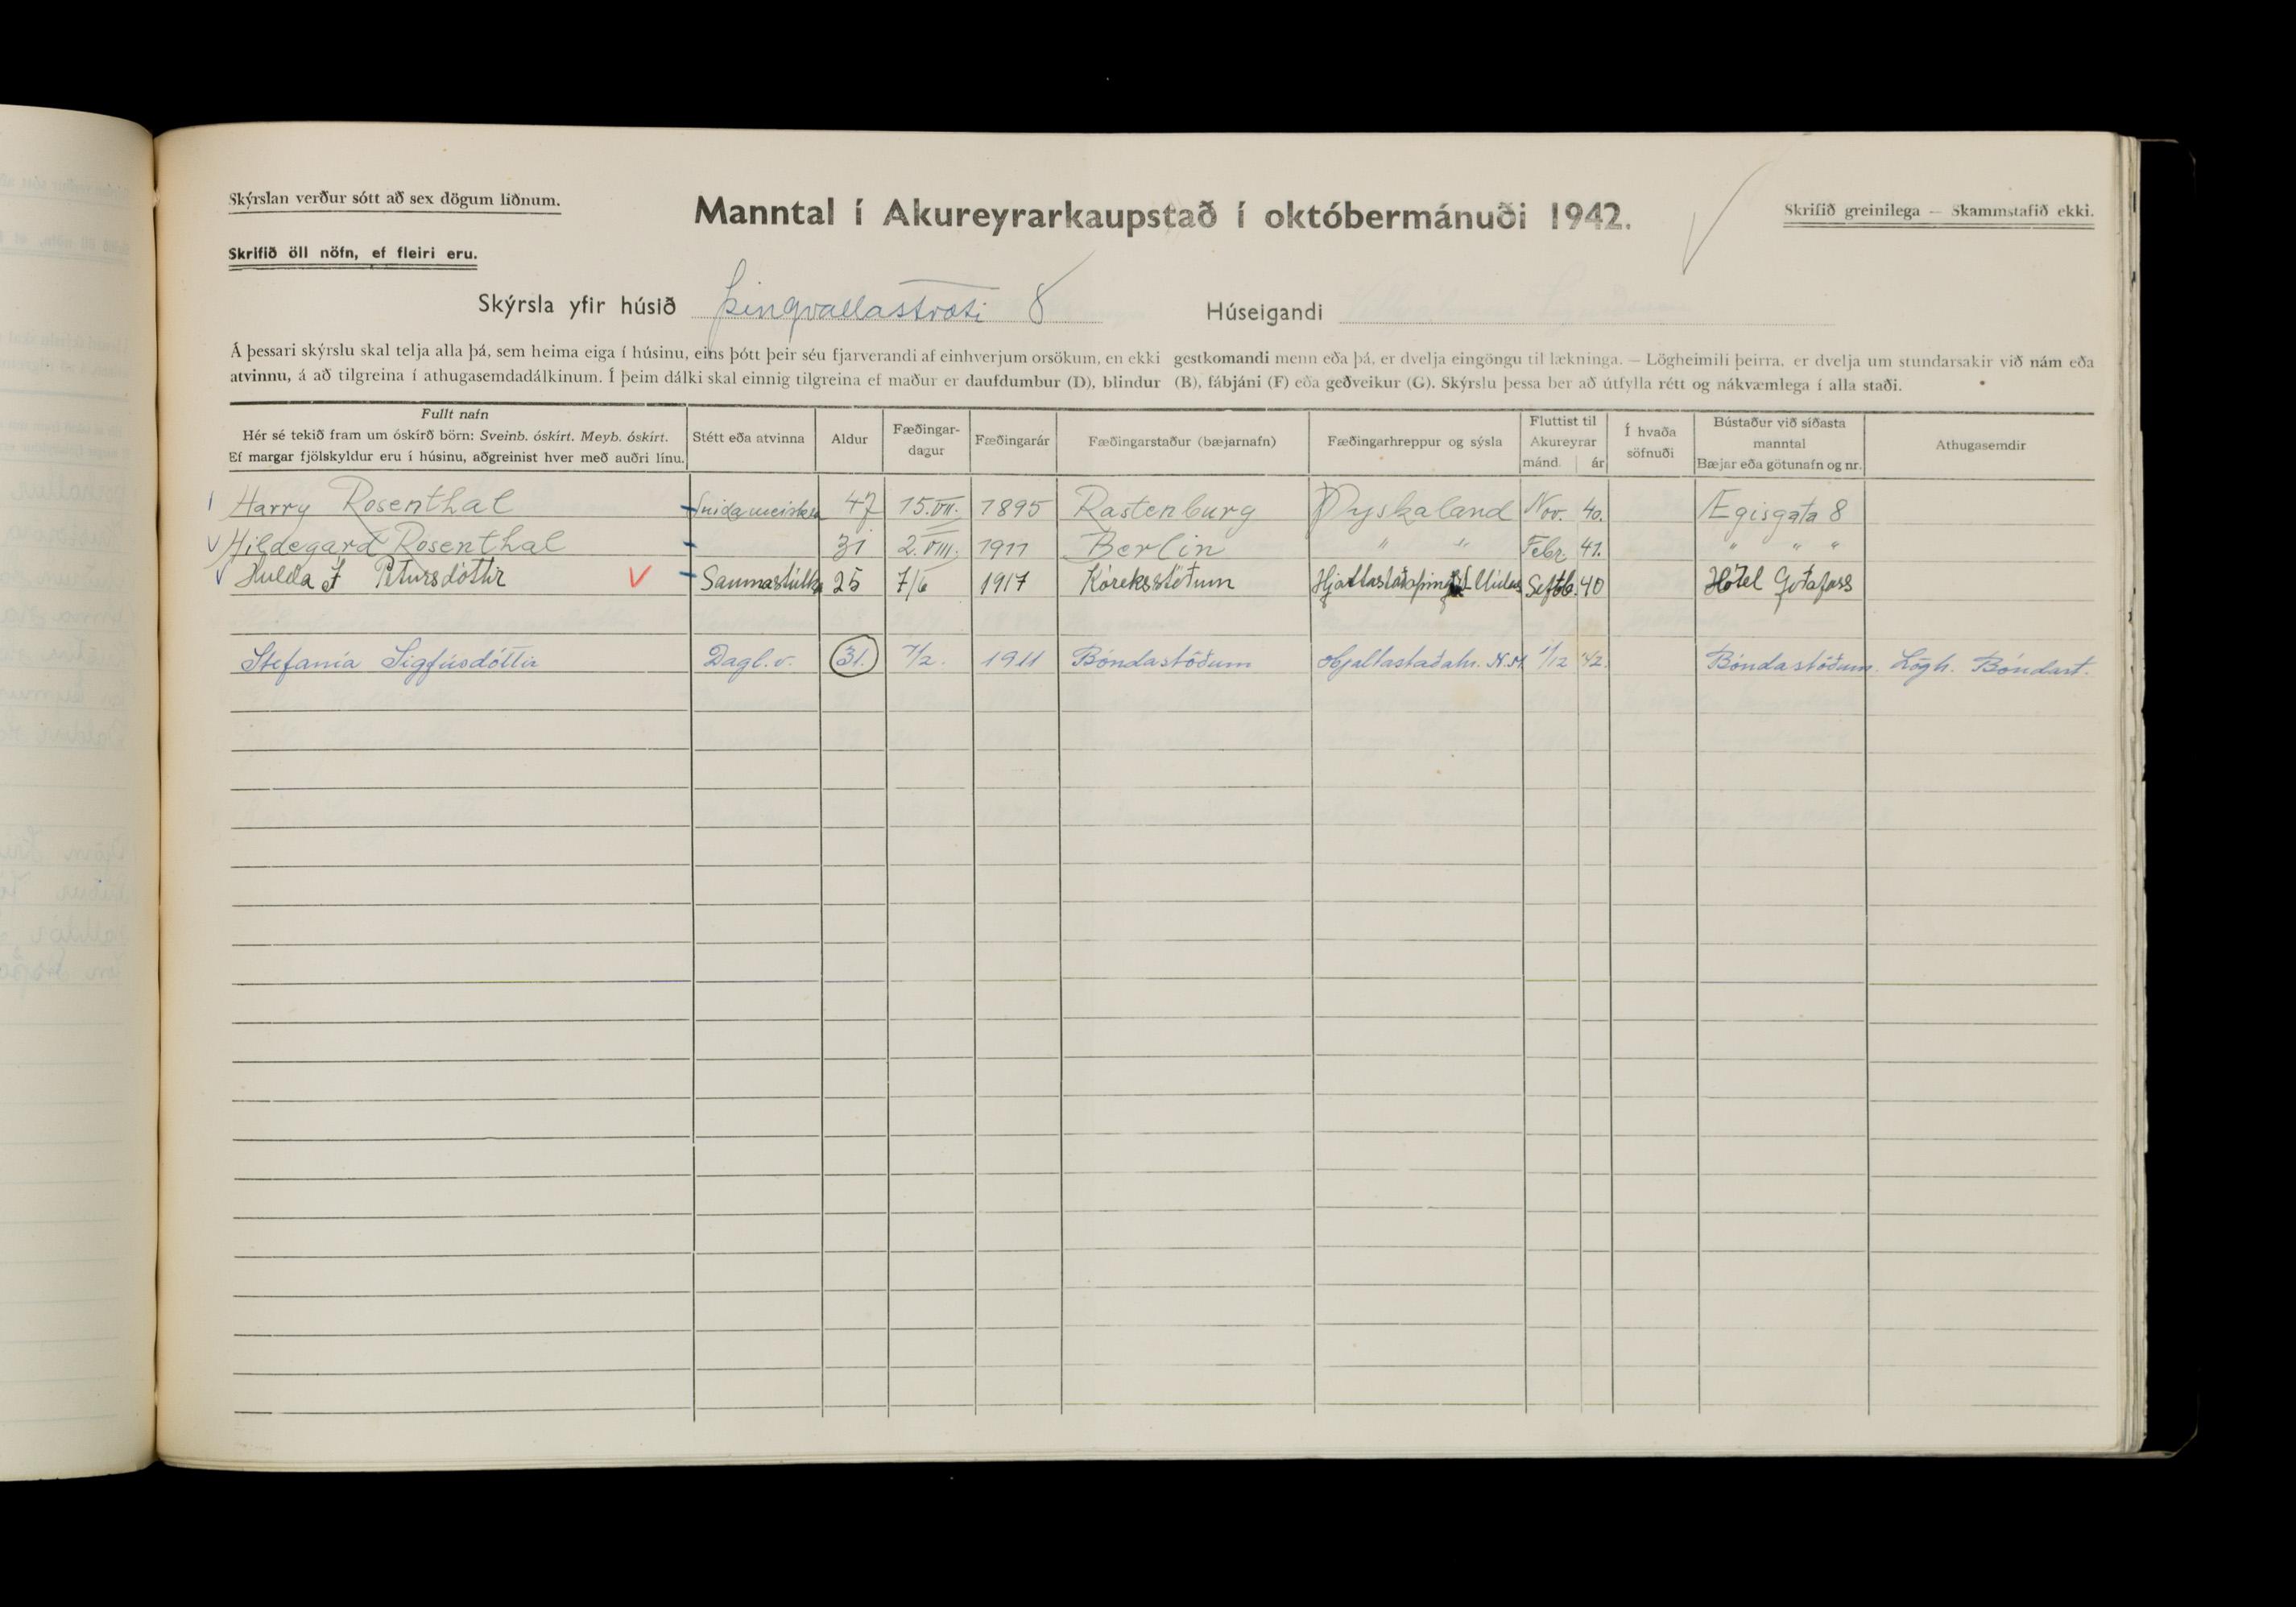 Skýrslan verður sótt að sex dögum liðnum.
Manntal í Akureyrarkaupstað í októbermánuði 1942.
Skrifið greinilega — Skammstafið ekki.
Skrifið öll nöfn, ef fleiri eru.
Skýrsla yfir húsið Þingvallastræti 8 Húseigandi
Á þessari skýrslu skal telja alla þá, sem heima eiga í húsinu, eins þótt þeir séu fjarverandi af einhverjum orsökum, en ekki gestkomandi menn eða þá, er dvelja eingöngu til lækninga. — Lögheimili þeirra, er dvelja um stundarsakir við nám eða
atvinnu, á að tilgreina í athugasemdadálkinum. Í þeim dálki skal einnig tilgreina ef maður er daufdumbur (D), blindur (B), fábjáni (F) eða geðveikur (G). Skýrslu þessa ber að útfylla rétt og nákvæmlega í alla staði.
Fullt nafn
Hér sé tekið fram um óskírð börn: Sveinb. óskírt. Meyb. óskírt.
Ef margar fjölskyldur eru í húsinu, aðgreinist hver með auðri línu.
Stétt eða atvinna
Aldur
Fæðingar-
dagur
Fæðingarár
Fæðingarstaður (bæjarnafn)
Fæðingarhreppur og sýsla
Fluttist til
Akureyrar
mánd. ár
Í hvaða
söfnuði
Bústaður við síðasta
manntal
Bæjar eða götunafn og nr.
Athugasemdir
Harry Rosenthal 47 15.VII. 1895 Rastenburg Þyskaland Nov. 40. Ægisgata 8
Hildegard Rosenthal 31 2.VIII. 1911 Berlin " " Febr 41. " " "
Hulda J Pétursdóttir V Saumastúlka 25 7/6 1917 Kóreksstöðum Septb. 40 Hótel Goðafoss
Stefanía Sigfúsdóttir Dagl.v. 31. 7/2. 1911 Bóndastöðum Hjaltastaðahr. N.M. 1/12 '42. Bóndastöðum. Lögh. Bóndast.